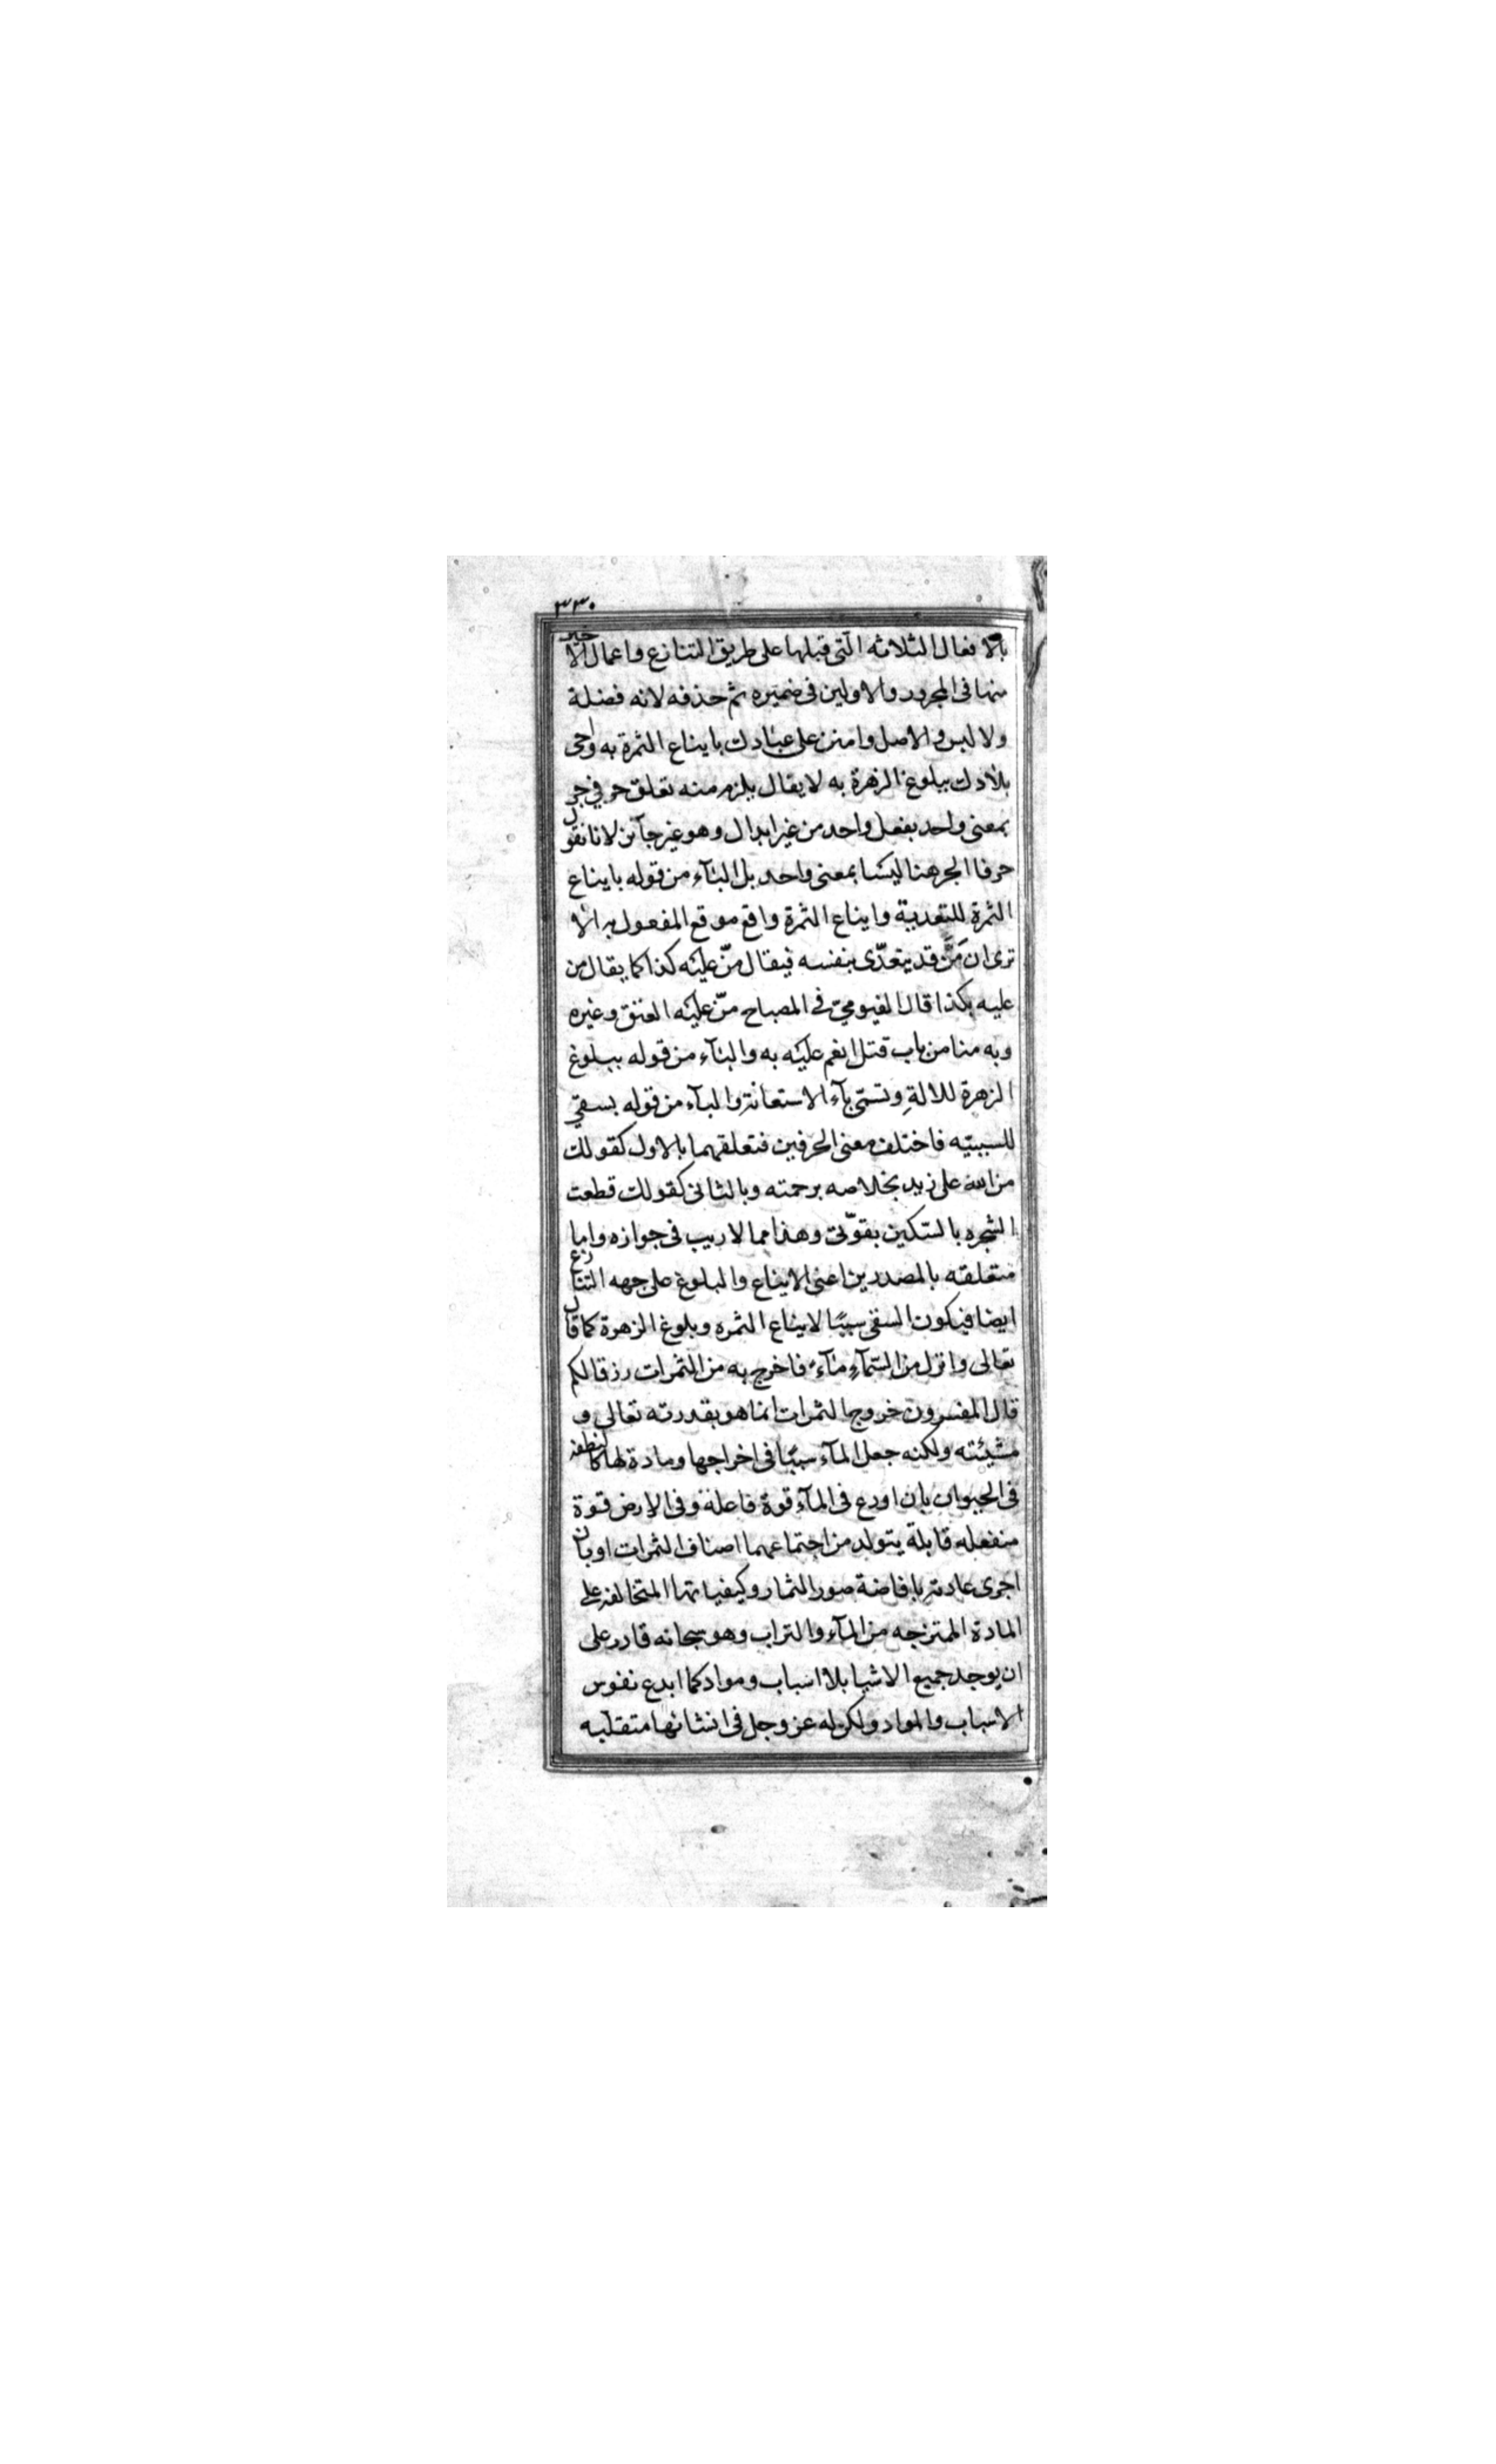 ٣٣٠
بالافعال الثلاثه التى قبلها على طريق التنازع واعمال الاخير
منها فى المجرور والاولين فى ضميره ثم حذفه لانه فضلة
ولا لبس والاصل وامنن على عبادك بايناع الثمرة به واحى
بلادك ببلوغ الزهرة به لا يقال يلزم منه تعلق حرفي جر
بمعنى واحد بفعل واحد من غير ابدال وهو غير جآئز لانا نقول
حرفا الجر هنا ليسا بمعنى واحد بل البآء من قوله بايناع
الثمرة للتعدية وايناع الثمرة واقع موقع المفعول به الا
ترى ان مَنَّ قد يتعدّى بنفسه فيقال منّ عليه كذا كما يقال من
عليه بكذا قال الفيومي في المصباح منّ عليه العتق وغيره
وبه منا من باب قتل انعم عليه به والبآء من قوله ببلوغ
الزهرة للالةِ وتسمّى بآء الاستعانة والبآء من قوله بسقي
للسببيّه فاختلف معنى الحرفين فتعلقهما بالاول كقولك
من الله على زيد بخلاصه برحمته وبالثانى كقولك قطعت
الشجره بالسّكين بقوّتى وهذا مما لا ريب فى جوازه واما
متعلقه بالمصدرين اعنى الايناع والبلوغ على جهه التنازع
ايضا فيكون السقى سببًا لايناع الثمره وبلوغ الزهرة كما قال
تعالى وانزل من السّمآءِ مآءً فاخرج به من الثمرات رزقا لكم
قال المفسرون خروج الثمرات انما هو بقدرته تعالى و
مشيئته ولكنه جعل المآء سببًا فى اخراجها ومادة لها كالنطفه
فى الحيوان بان اودع فى المآء قوة فاعلة وفى الارض قوة
منفعله قابلة يتولد من اجتماعهما اصناف الثمرات او بان
اجرى عادته بافاضة صور الثمار وكيفياتها المتخالفه على
المادة الممتزجه من المآء والتراب وهو سبحانه قادر على
ان يوجد جميع الاشيا بلا اسباب ومواد كما ابدع نفوس
الاسباب والمواد ولكن له عز وجل فى انشائها متقلبه